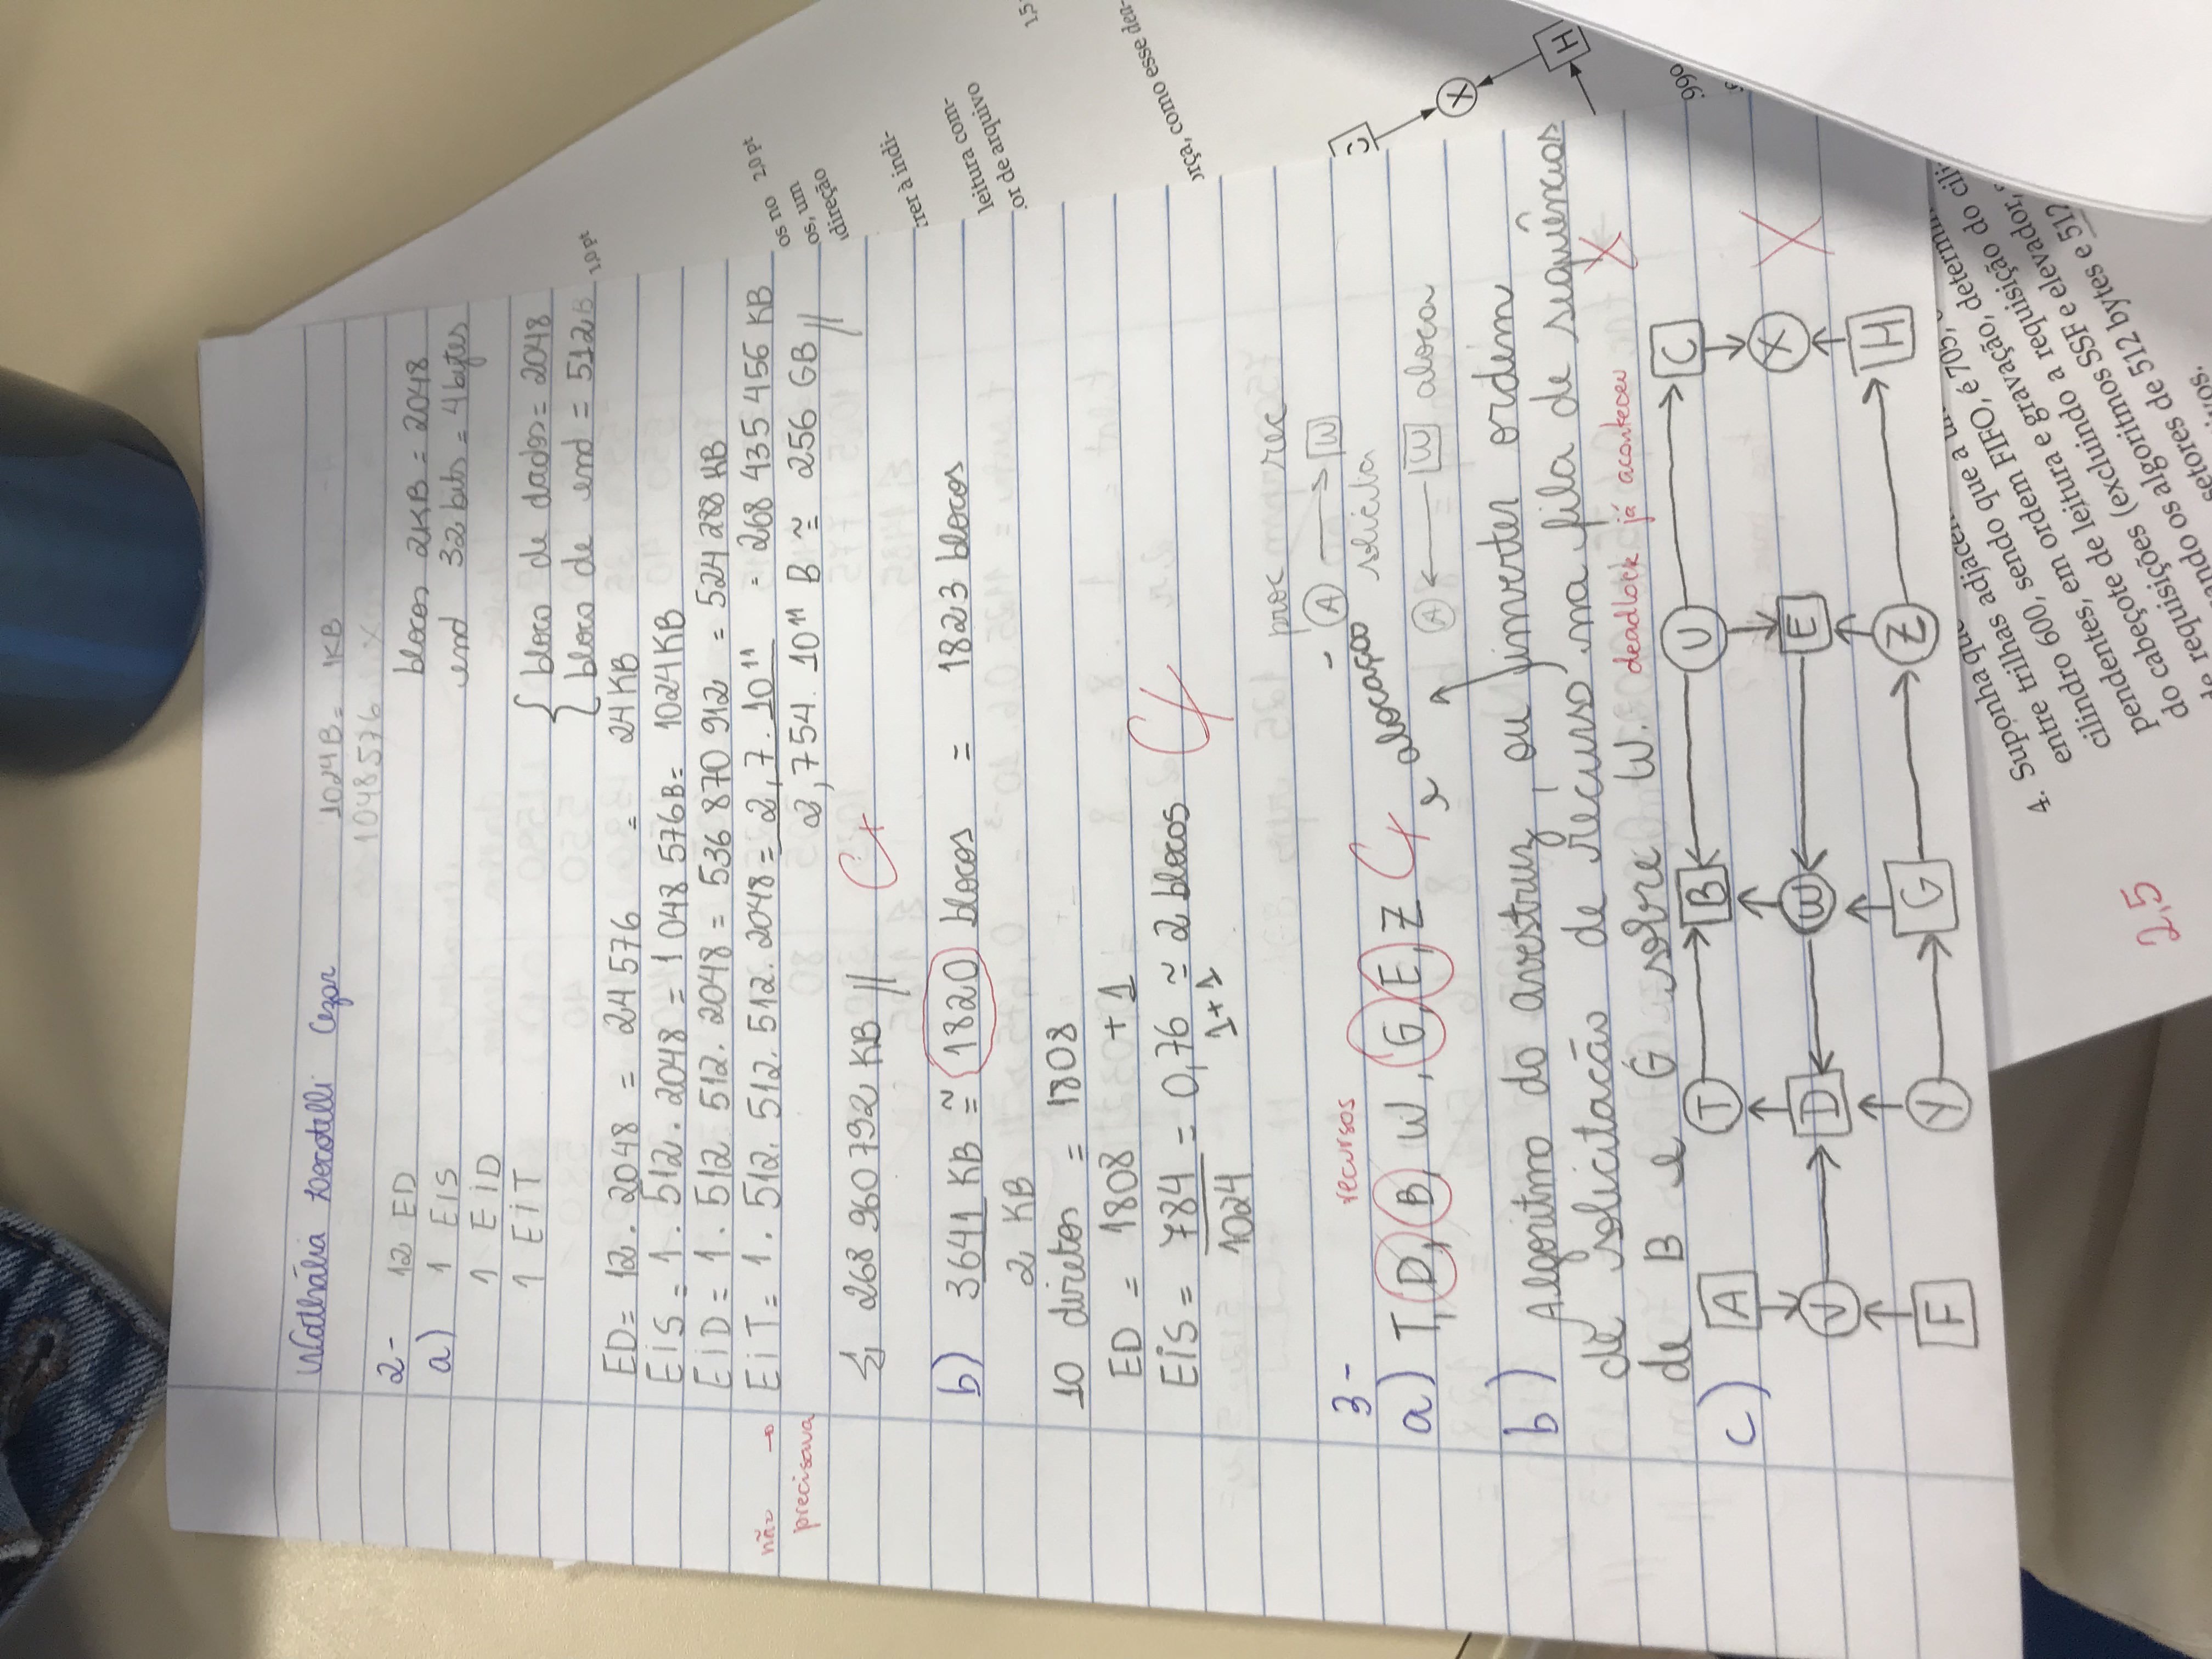 Nathália Decotelli Cezar
1024B = 1KB
1048576 X
2- 12 ED
a) 1 EIS
1 EID
1 EIT
blocos 2KB = 2048
end 32 bits = 4 bytes
{ bloco de dados = 2048
bloco de end = 512B
ED = 12 . 2048 = 24 576 = 24 KB
EIS = 1 . 512 . 2048 = 1 048 576B = 1024 KB
EID = 1 . 512 512 . 2048 = 536 870 912 = 524 288 KB
EIT = 1 . 512 . 512 . 512 . 2048 = 2,7 . 10¹¹ = 268 435 456 KB
não → precisava
2,754 . 10¹¹ B ≅ 256 GB //
Σ 268 960 792 KB // C+
b) 3641 KB ≅ 1820 blocos = 1823 blocos
2 KB
10 diretos = 1808
ED = 1808 + 1
EIS = 784 = 0,76 ≃ 2 blocos
1024
1 + 1
3-
recursos
a) T, D, B, W, G, E, Z
e alocação
proc rec
- A → W
solicita
A ← W aloca
b) Algoritmo do avestruz, ou inverter ordem
de solicitacão de recurso na fila de sequências
de B e G sobre W. deadlock já aconteceu X
c) A T B U C
V D W E X X
F Y G Z H
1,0 pt
os no 2,0 pt
os, um
direção
rer à indi-
leitura com-
or de arquivo
1,5
orça, como esse dea-
X
H
990
4. Suponha que
entre trilhas adjacen
cilindro 600, sendo que a
pendentes, em ordem FIFO, é 705,
do cabeçote de leitura e gravação, determin
requisições (excluindo a requisição do cili
ando os algoritmos SSF e elevador,
setores de 512 bytes e 512
2,5